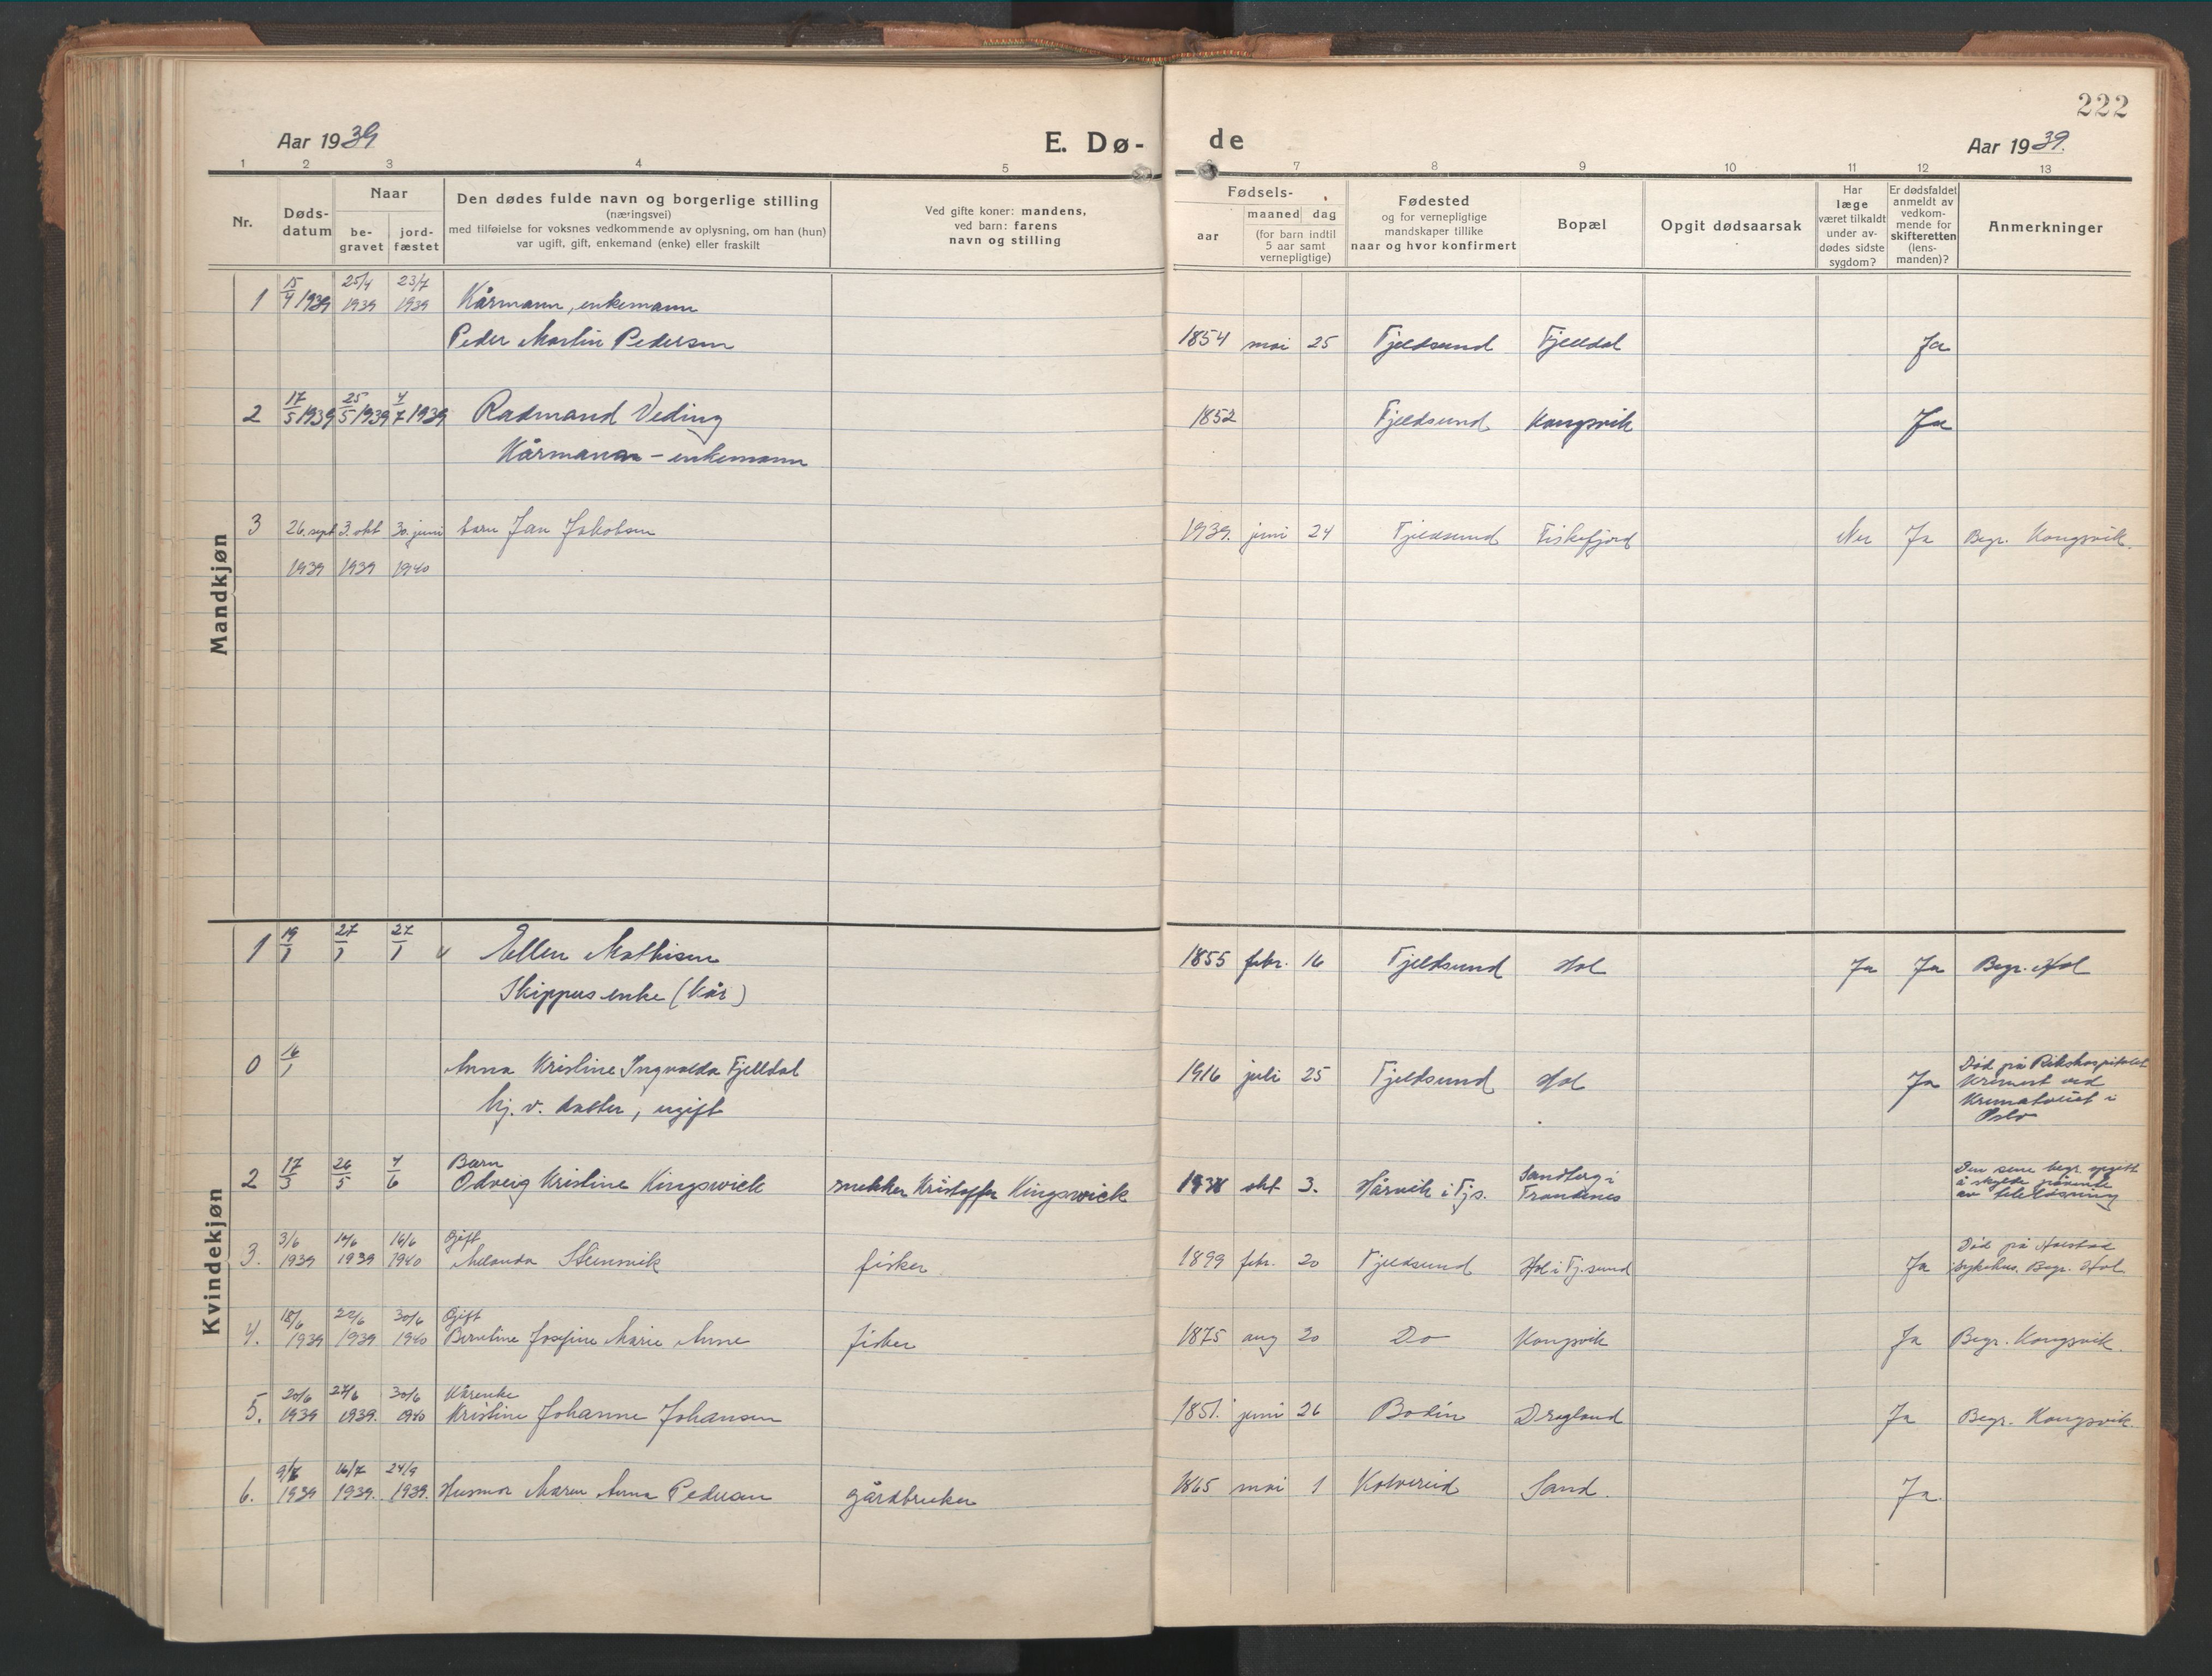 222
Aar 1939
E. Dø-
de
Aar 1939.
1 2 3 4 5 6 7 8 9 10 11 12 13
Nr.
Døds-
datum
Naar
be-
gravet
jord-
fæstet
Den dødes fulde navn og borgerlige stilling
(næringsvei)
med tilføielse for voksnes vedkommende av oplysning, om han (hun)
var ugift, gift, enkemand (enke) eller fraskilt
Ved gifte koner: mandens,
ved barn: farens
navn og stilling
Fødsels-
aar
maaned dag
(for barn indtil
5 aar samt
vernepligtige)
Fødested
og for vernepligtige
mandskaper tillike
naar og hvor konfirmert
Bopæl
Opgit dødsaarsak
Har
læge
været tilkaldt
under av-
dødes sidste
sygdom?
Er dødsfaldet
anmeldt av
vedkom-
mende for
skifteretten
(lens-
manden)?
Anmerkninger
Mandkjøn
1 15/4 1939 25/4 1939 23/7 1939 Kårmann, enkemann
Peder Martin Pedersen 1854 mai 25 Fjeldsund Fjelldal Ja
2 17/5 1939 25/5 1939 4/7 1939 Radmand Veding 1852 Fjeldsund Kongsvik Ja
Kårmann - enkemann
3 26. sept 3. okt 30. juni barn Jan Jakobsen 1939. juni 24 Fjeldsund Fiskefjord Nei Ja Begr. Kongsvik.
1939 1939 1940
Kvindekjøn
1 19/1 27/1 27/1 Ellen Mathisen 1855 febr. 16 Fjeldsund Hol Ja Ja Begr. Hol
Skippers enke (kår)
0 16/1 Anna Kristine Ingvalda Fjelldal 1916 juli 25 Fjeldsund Hol Ja Død på Rikshospitalet
Kremert ved
Krematoriet i
Oslo
hj. v. datter, ugift
Barn
2 17/3 26/5 4/6 Odveig Kristine Kingswick snekker Kristoffer Kingswick okt 3. Hårvik i Fjs. Sandberg i
Trondenes
Den sene begr. opgitt
å skylde
av teleløsning
Gift
3. 3/6 1939 1939 16/6 1940 Melanda Steinsvik fisker 1899 febr. 20 Fjeldsund Hol i Fj.sund Ja Død på Harstad
sykehus. Begr. Hol
Gift
4. 18/6 1939 1939 30/6 1940 Berntine Josefine Marie Anne fisker 1875 aug 20 Do Kongsvik Ja Begr. Kongsvik.
Kårenke
5. 20/6 1939 27/6 1939. 30/6 1940 Kristine Johanne Johansen 1851. juni 26 Bodin Dragland Ja Begr. Kongsvik.
6. 9/7 1939 16/7 1939. 24/9 1939. Husmor Maren Anna Pedersen gårdbruker 1865 mai 1 Kolvereid Sand. Ja.